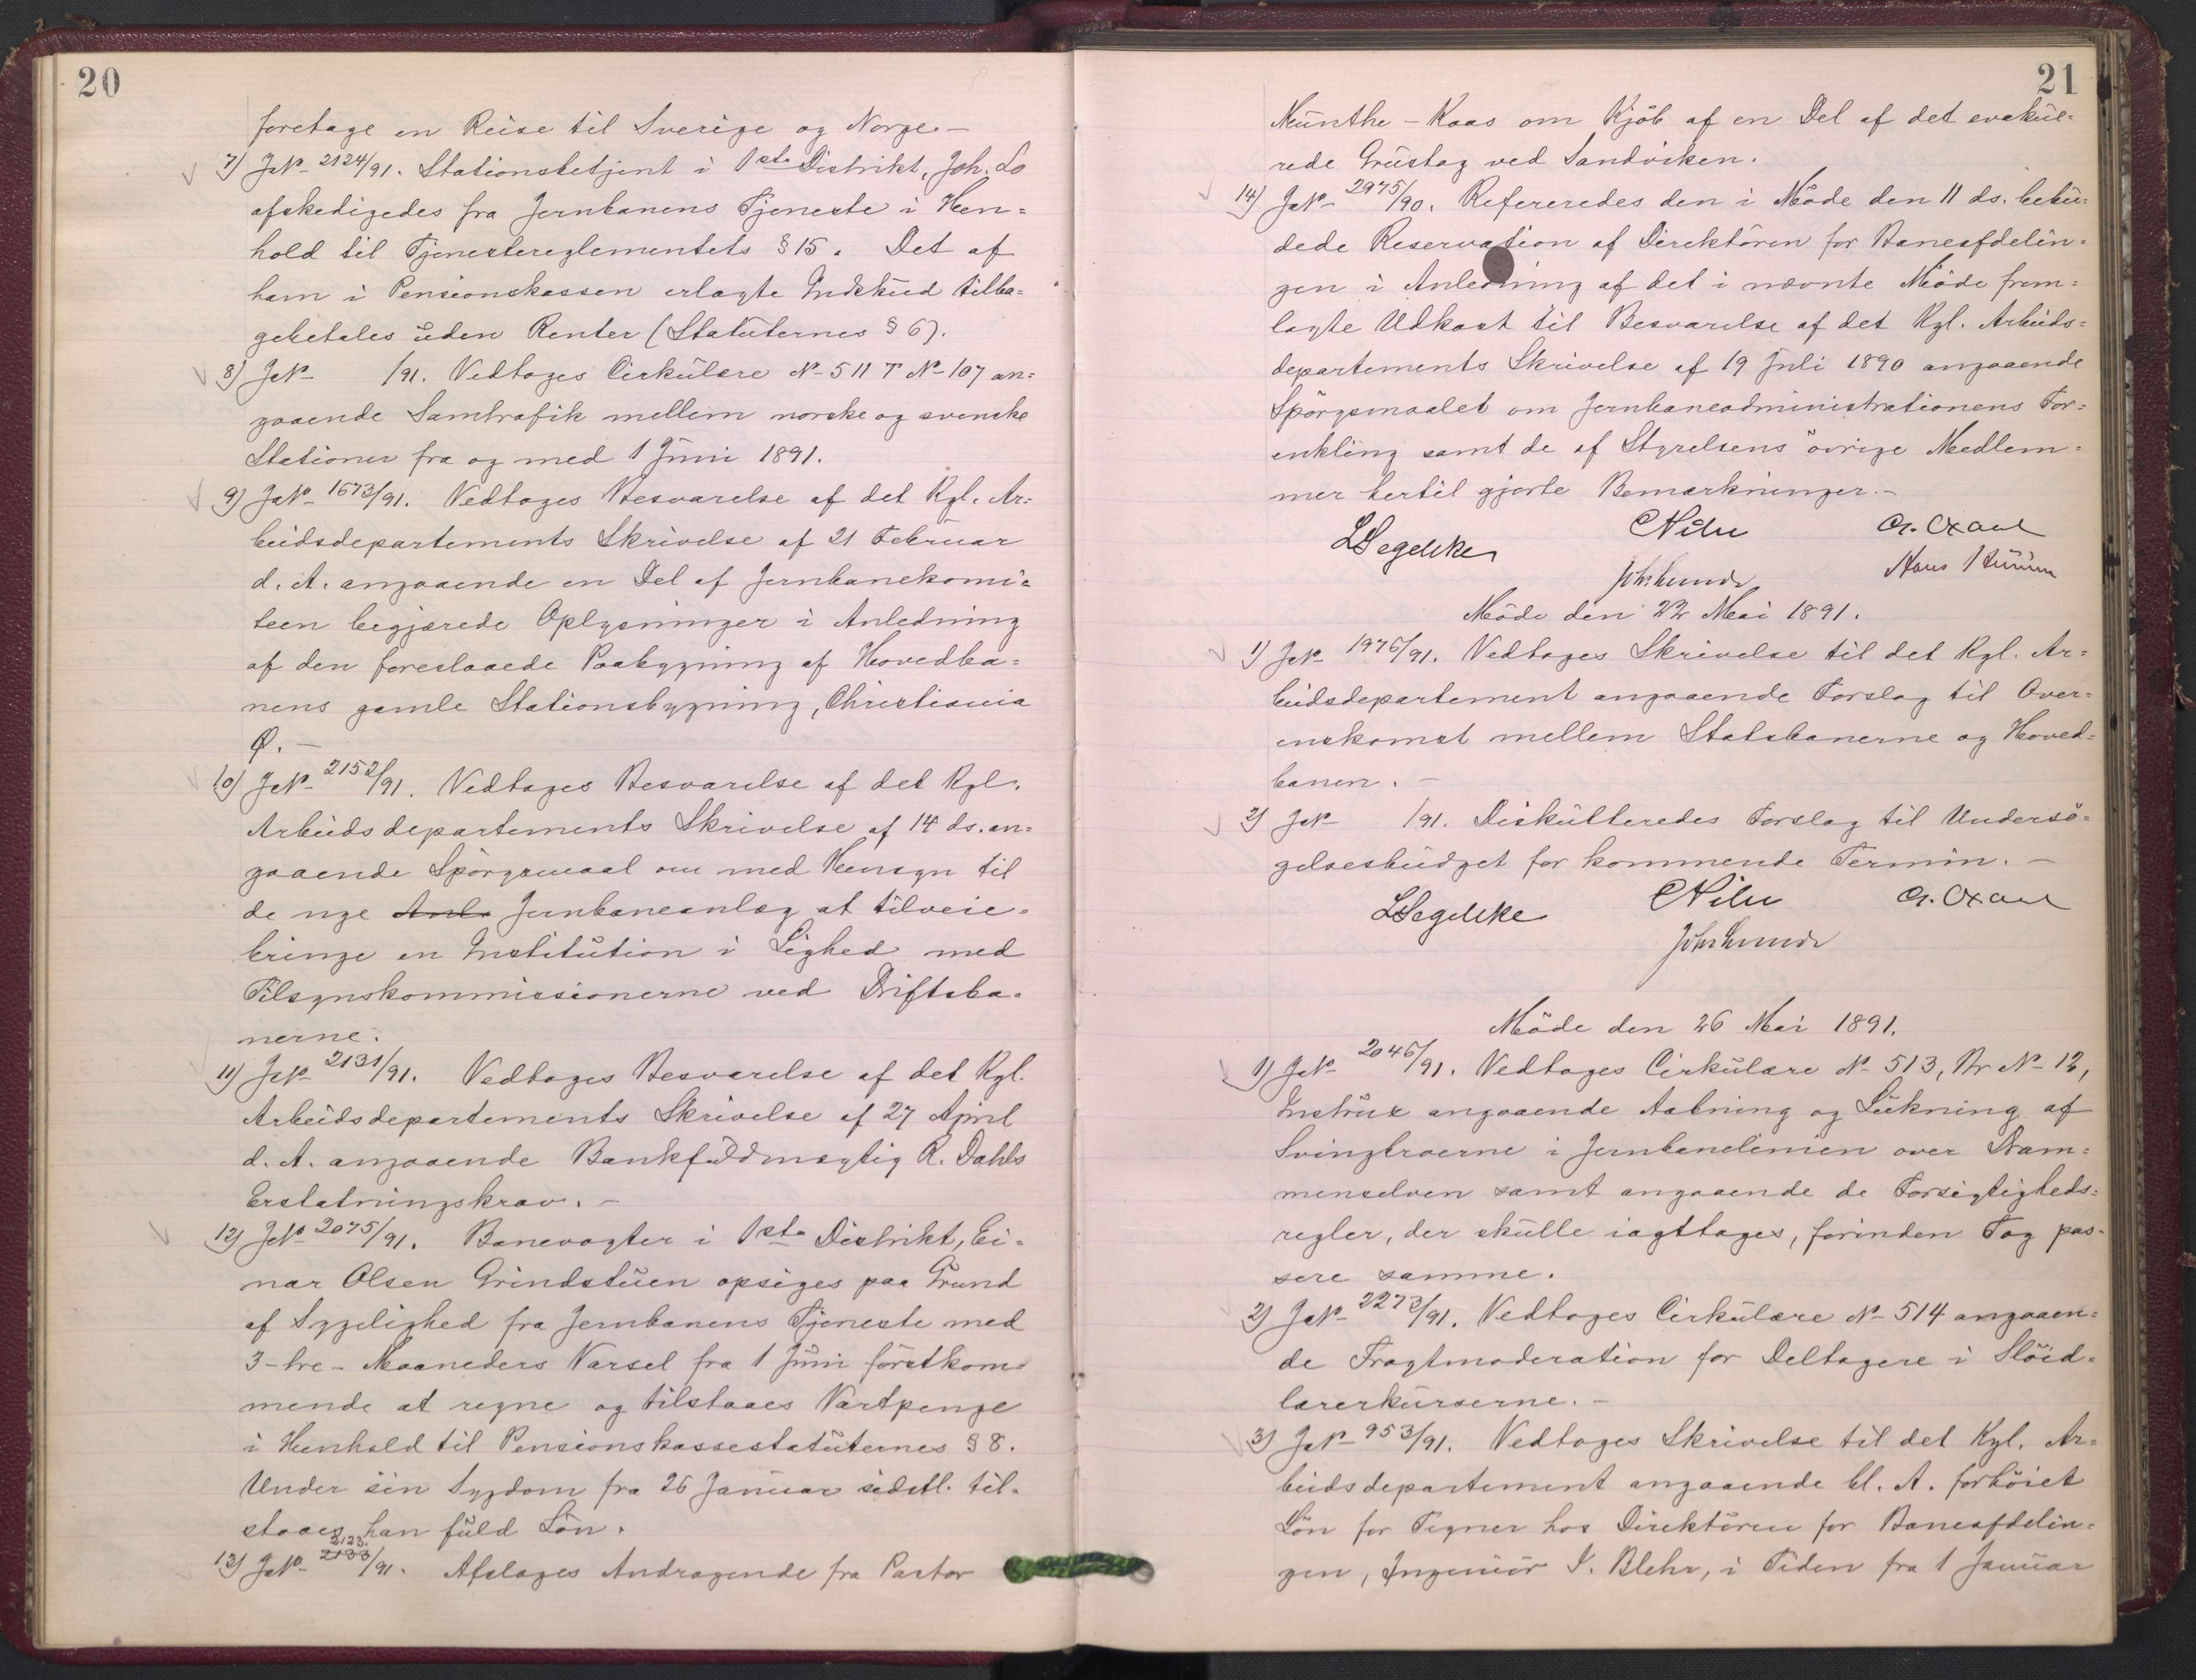 20
foretage en Reise til Sverige og Norge.-
7) JNo 2124/91. Stationsbetjent i 1ste Distrikt, Joh. Lo
afskedigedes fra Jernbanens Tjeneste i Hen=
hold til Tjenestereglementets § 15. Det af
ham i Pensionskassen erlagte Indskud tilba=
gebetales uden Renter (Statuternes § 6).
8) JNo /91. Vedtoges Cirkulære No 511 T No 107 an=
gaaende Samtrafik mellem norske og svenske
Stationer fra og med 1 Juni 1891.
9) JNo 1673/91. Vedtoges Besvarelse af det Kgl. Ar=
beidsdepartements Skrivelse af 21 Februar
d. A. angaaende en Del af Jernbanekomi=
teen begjærede Oplysninger i Anledning
af den foreslaaede Paabygning af Hovedba=
nens gamle Stationsbygning, Christiania
Ø.-
10) JNo 2152/91. Vedtoges Besvarelse af det Kgl.
Arbeidsdepartements Skrivelse af 14 ds. an=
gaaende Spørgsmaal om med Hensyn til
de nye Anl. Jernbaneanlæg at tilveie=
bringe en Institution i Lighed med
Tilsynskommissionerne ved Driftsba=
nerne.
11) JNo 2131/91. Vedtoges Besvarelse af det Kgl.
Arbeidsdepartements Skrivelse af 27 April
d. A. angaaende Bankfuldmægtig R. Dahls
Erstatningskrav.-
12) JNo 2075/91. Banevogter i 1ste Distrikt, Ei=
nar Olsen Grindstuen opsiges paa Grund
af Sygelighed fra Jernbanens Tjeneste med
3-tre- Maaneders Varsel fra 1 Juni førstkom=
mende at regne og tilstaaes Vartpenge
i Henhold til Pensionskassestatuternes § 8.
Under sin Sygdom fra 26 Januar sidstl. til=
staaes han fuld Løn.
2123.
13) JNo 2133/91. Afsloges Andragende fra Pastor
21
Munthe-Kaas om Kjøb af en Del af det evakue=
rede Grustag ved Sandviken.
14) JNo 2975/90. Refereredes den i Møde den 11 ds. bebu=
dede Reservation af Direktøren for Baneafdelin=
gen i Anledning af det i nævnte Møde frem=
lagte Udkast til Besvarelse af det Kgl. Arbeids=
departements Skrivelse af 19 Juli 1890 angaaende
Spørgsmaalet om Jernbaneadministrationens For=
enkling samt de af Styrelsens øvrige Medlem=
mer hertil gjorte Bemærkninger.-
LSegelcke CNilsen
Møde den 22 Mai 1891.
1) JNo 1976/91. Vedtoges Skrivelse til det Kgl. Ar=
beidsdepartement angaaende Forslag til Over=
enskomst mellem Statsbanerne og Hoved=
banen.-
2) JNo /91. Diskutteredes Forslag til Undersø=
gelsesbudget for kommende Termin.-
LSegelcke CNilsen
Møde den 26 Mai 1891.
1) JNo 2046/91. Vedtoges Cirkulære No 513, Br No 12,
Instrux angaaende Aabning og Lukning af
Svingbroerne i Jernbanelinien over Dram=
menselven samt angaaende de Forsigtigheds=
regler, der skulle iagttages, forinden Tog pas=
sere samme.
2) JNo 2273/91. Vedtoges Cirkulære No 514 angaaen=
de Fragtmoderation for Deltagere i Sløid=
lærerkurserne.-
3) JNo 953/91. Vedtoges Skrivelse til det Kgl. Ar=
beidsdepartement angaaende bl. A. forhøiet
Løn for Tegner hos Direktøren for Baneafdelin=
gen, Ingeniør I. Blehr, i Tiden fra 1 Januar